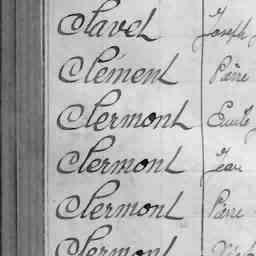 Clavel Joseph
Clément Pierre
Clermont Emile
Clermont Jean
Clermont Pierre
Clermont